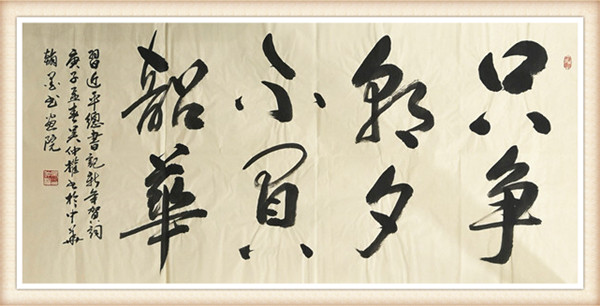 只争
朝夕
不負
韶華
習近平總書記新年賀詞
庚子孟春吴仲書於中華
翰墨書畫院